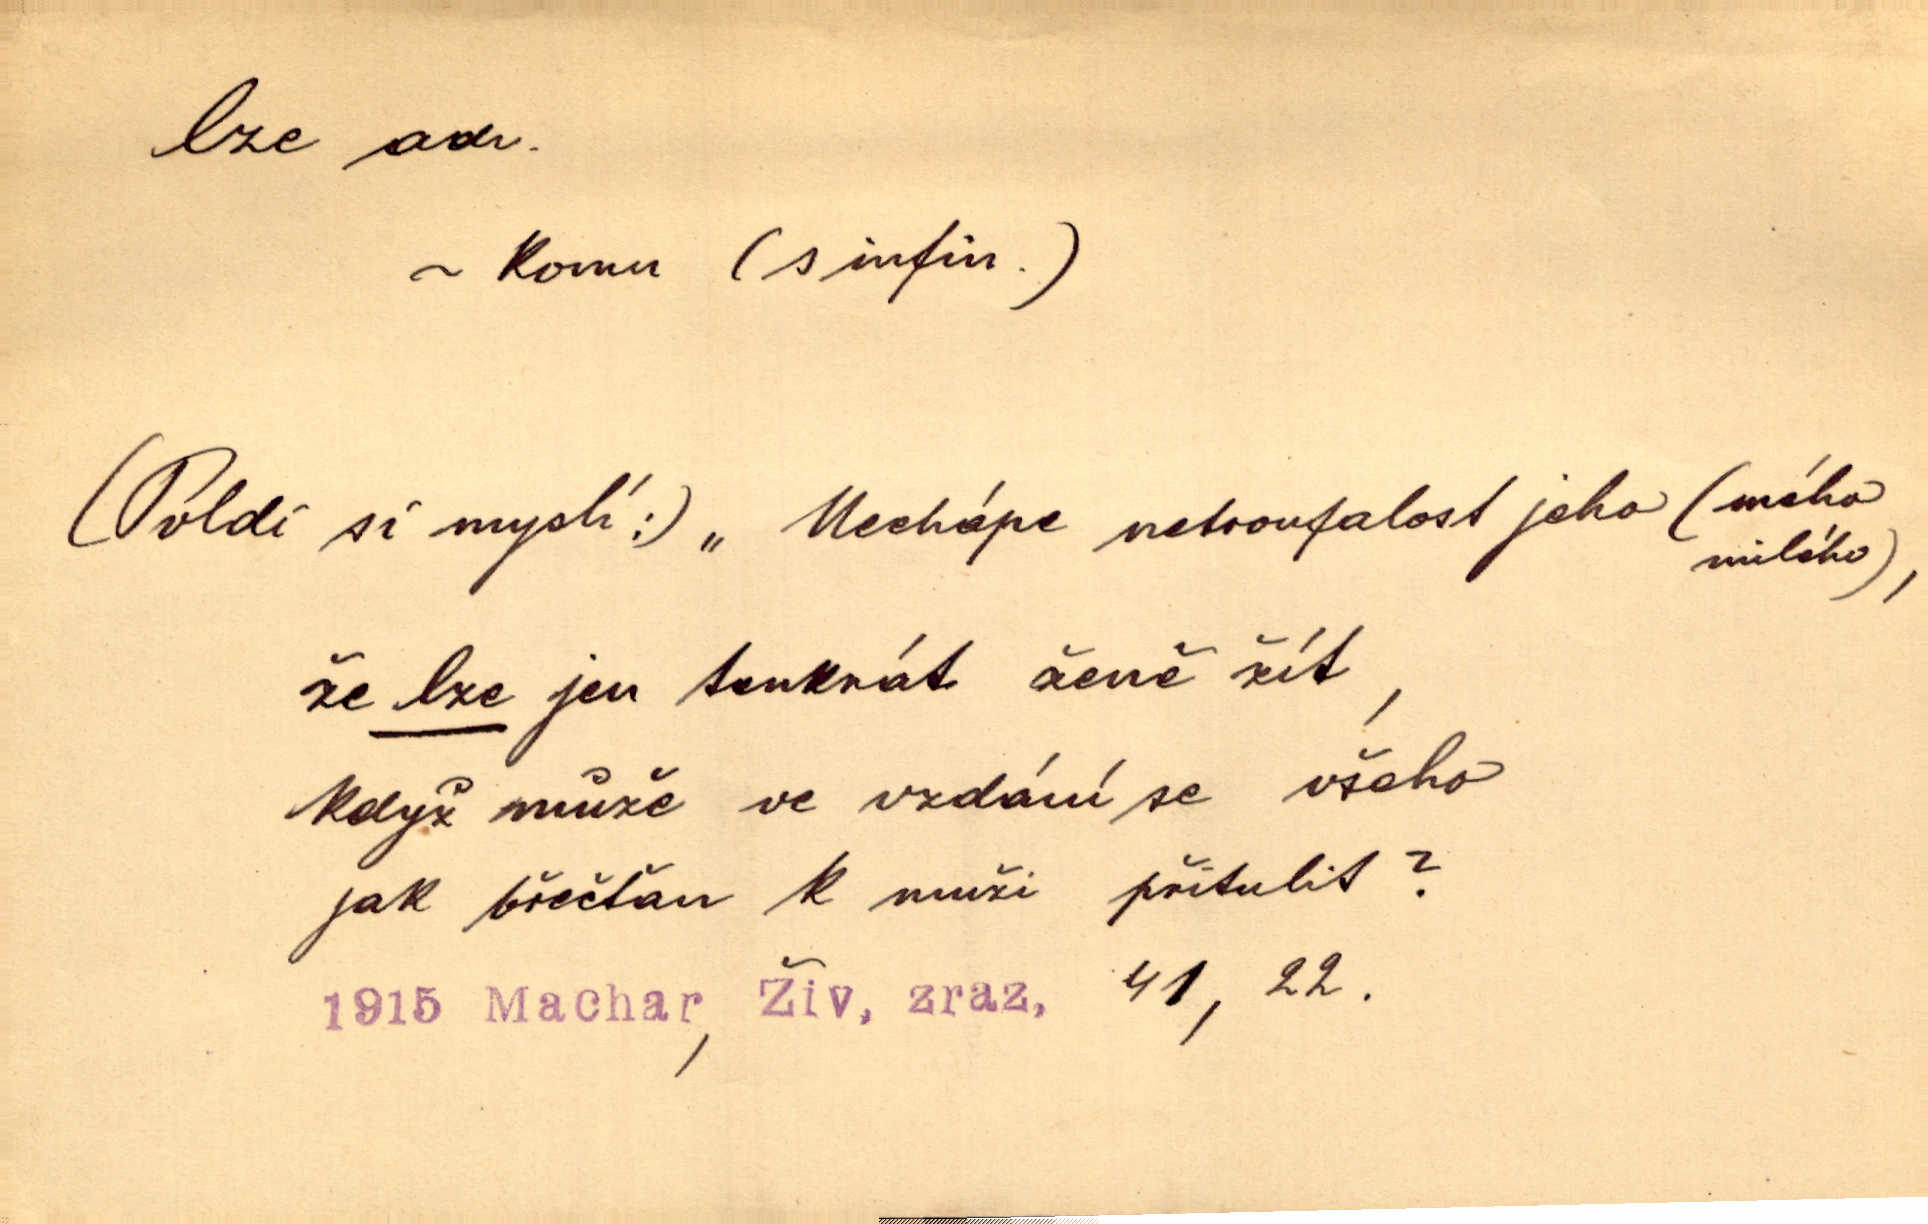 lze adv.
~ komu (s infin.)
(Poldi si myslí:) „Nechápe netroufalost jeho (mého
milého),
že lze jen tenkrát ženě žít,
když může ve vzdání se všeho
jak břečťan k muži přitulit?
1915 Machar, Živ, zraz, 41, 22.